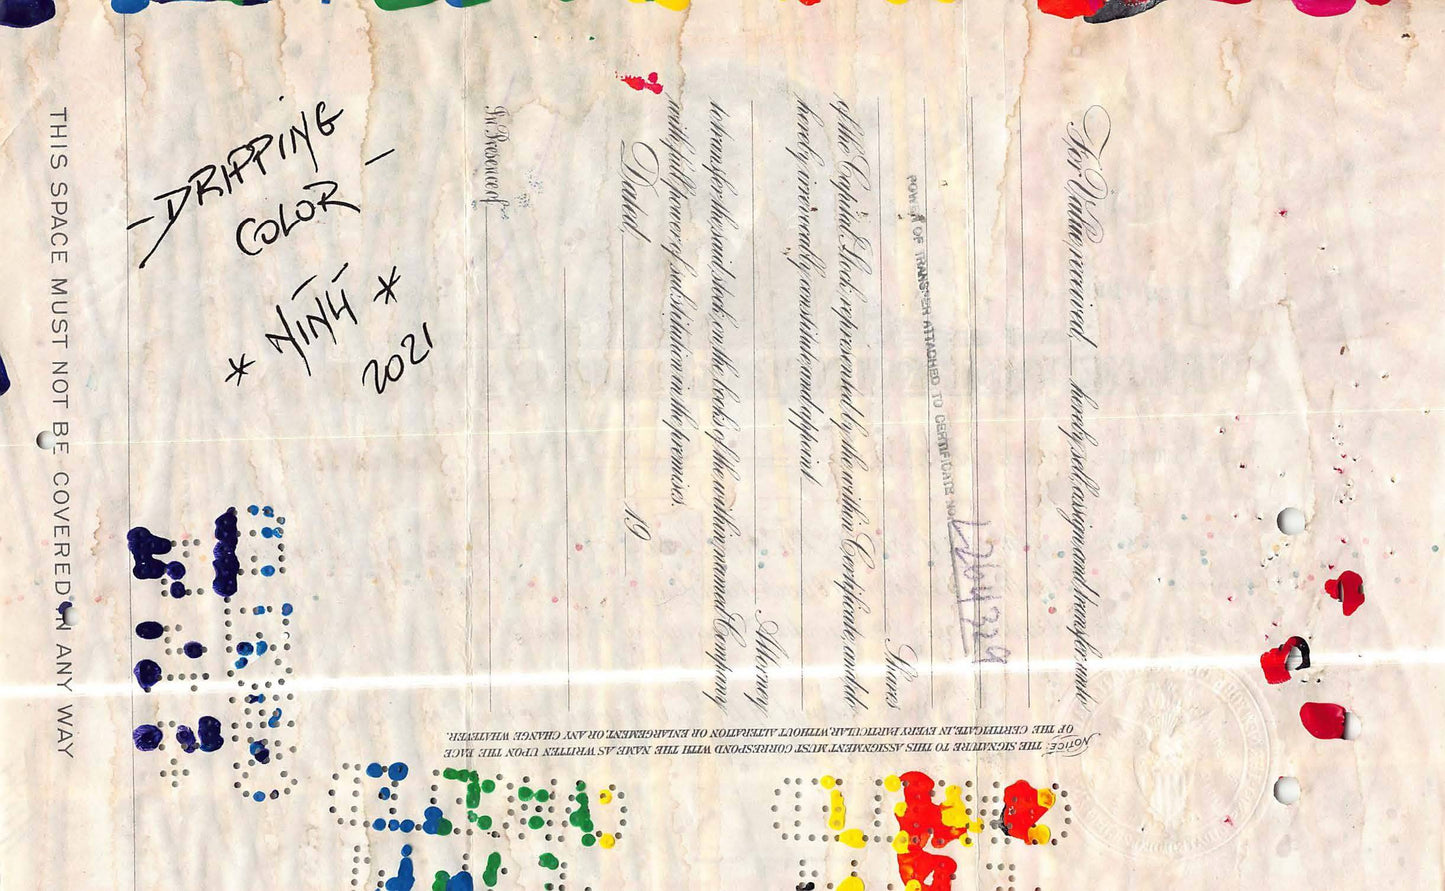 -DRIPPING
COLOR-
*NiNÍ*
2021
THIS SPACE MUST NOT BE COVERED IN ANY WAY
For Value received, hereby sell, assign and transfer unto
POWER OF TRANSFER ATTACHED TO CERTIFICATE NO.
Shares
of the Capital Stock represented by the within Certificate, and do
hereby irrevocably constitute and appoint
Attorney
to transfer the said stock on the books of the within named Company
with full power of substitution in the premises.
Dated, 19
In Presence of
NOTICE: THE SIGNATURE TO THIS ASSIGNMENT MUST CORRESPOND WITH THE NAME AS WRITTEN UPON THE FACE
OF THE CERTIFICATE, IN EVERY PARTICULAR, WITHOUT ALTERATION OR ENLARGEMENT, OR ANY CHANGE WHATEVER.